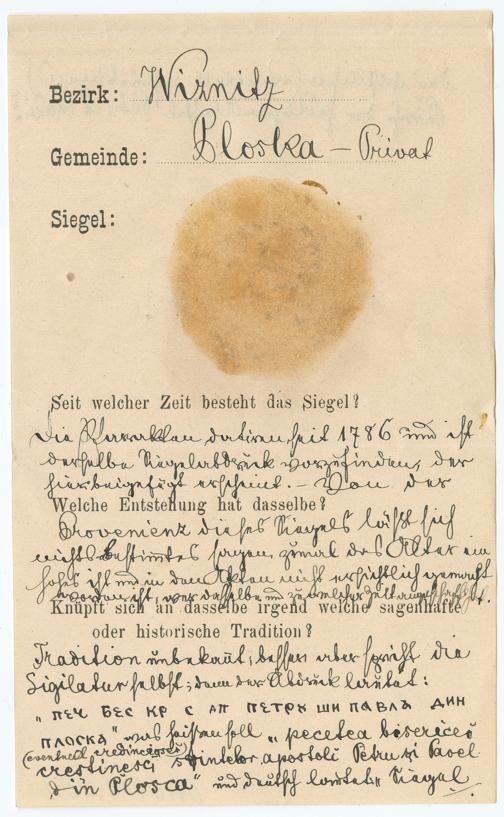 Bezirk: Wiznitz
Gemeinde: Ploska - Privat
Siegel:
Seit welcher Zeit besteht das Siegel?
Die Pfarrakten datiren seit 1786 und ist
derselbe Siegelabdruck vorzufinden, der
hierbeigefügt erscheint. - Von der
Welche Entstehung hat dasselbe?
Provenienz dieses Siegels läßt sich
nichts bestimmtes sagen, zumal das Alter ein
hohes ist und in den Akten nicht ersichtlich gemacht
worden ist, wer dasselbe und zu welcher Zeit angeschafft.
Knüpft sich an dasselbe irgend welche sagenhafte
oder historische Tradition?
Tradition unbekannt; besser aber spricht die
Sigilatur selbst; denn der Abdruck lautet:
„ ПЕЧ БЕС КР С АП ПЕТРУ ШИ ПАВЛА ДИН
ПЛОСКА" was heissen soll „pecetea bisericei
(eventuell credincioșei)
crestinesci sfintelor apostoli Petru și Pavel
din Plosca" und deutsch lautet: Siegel